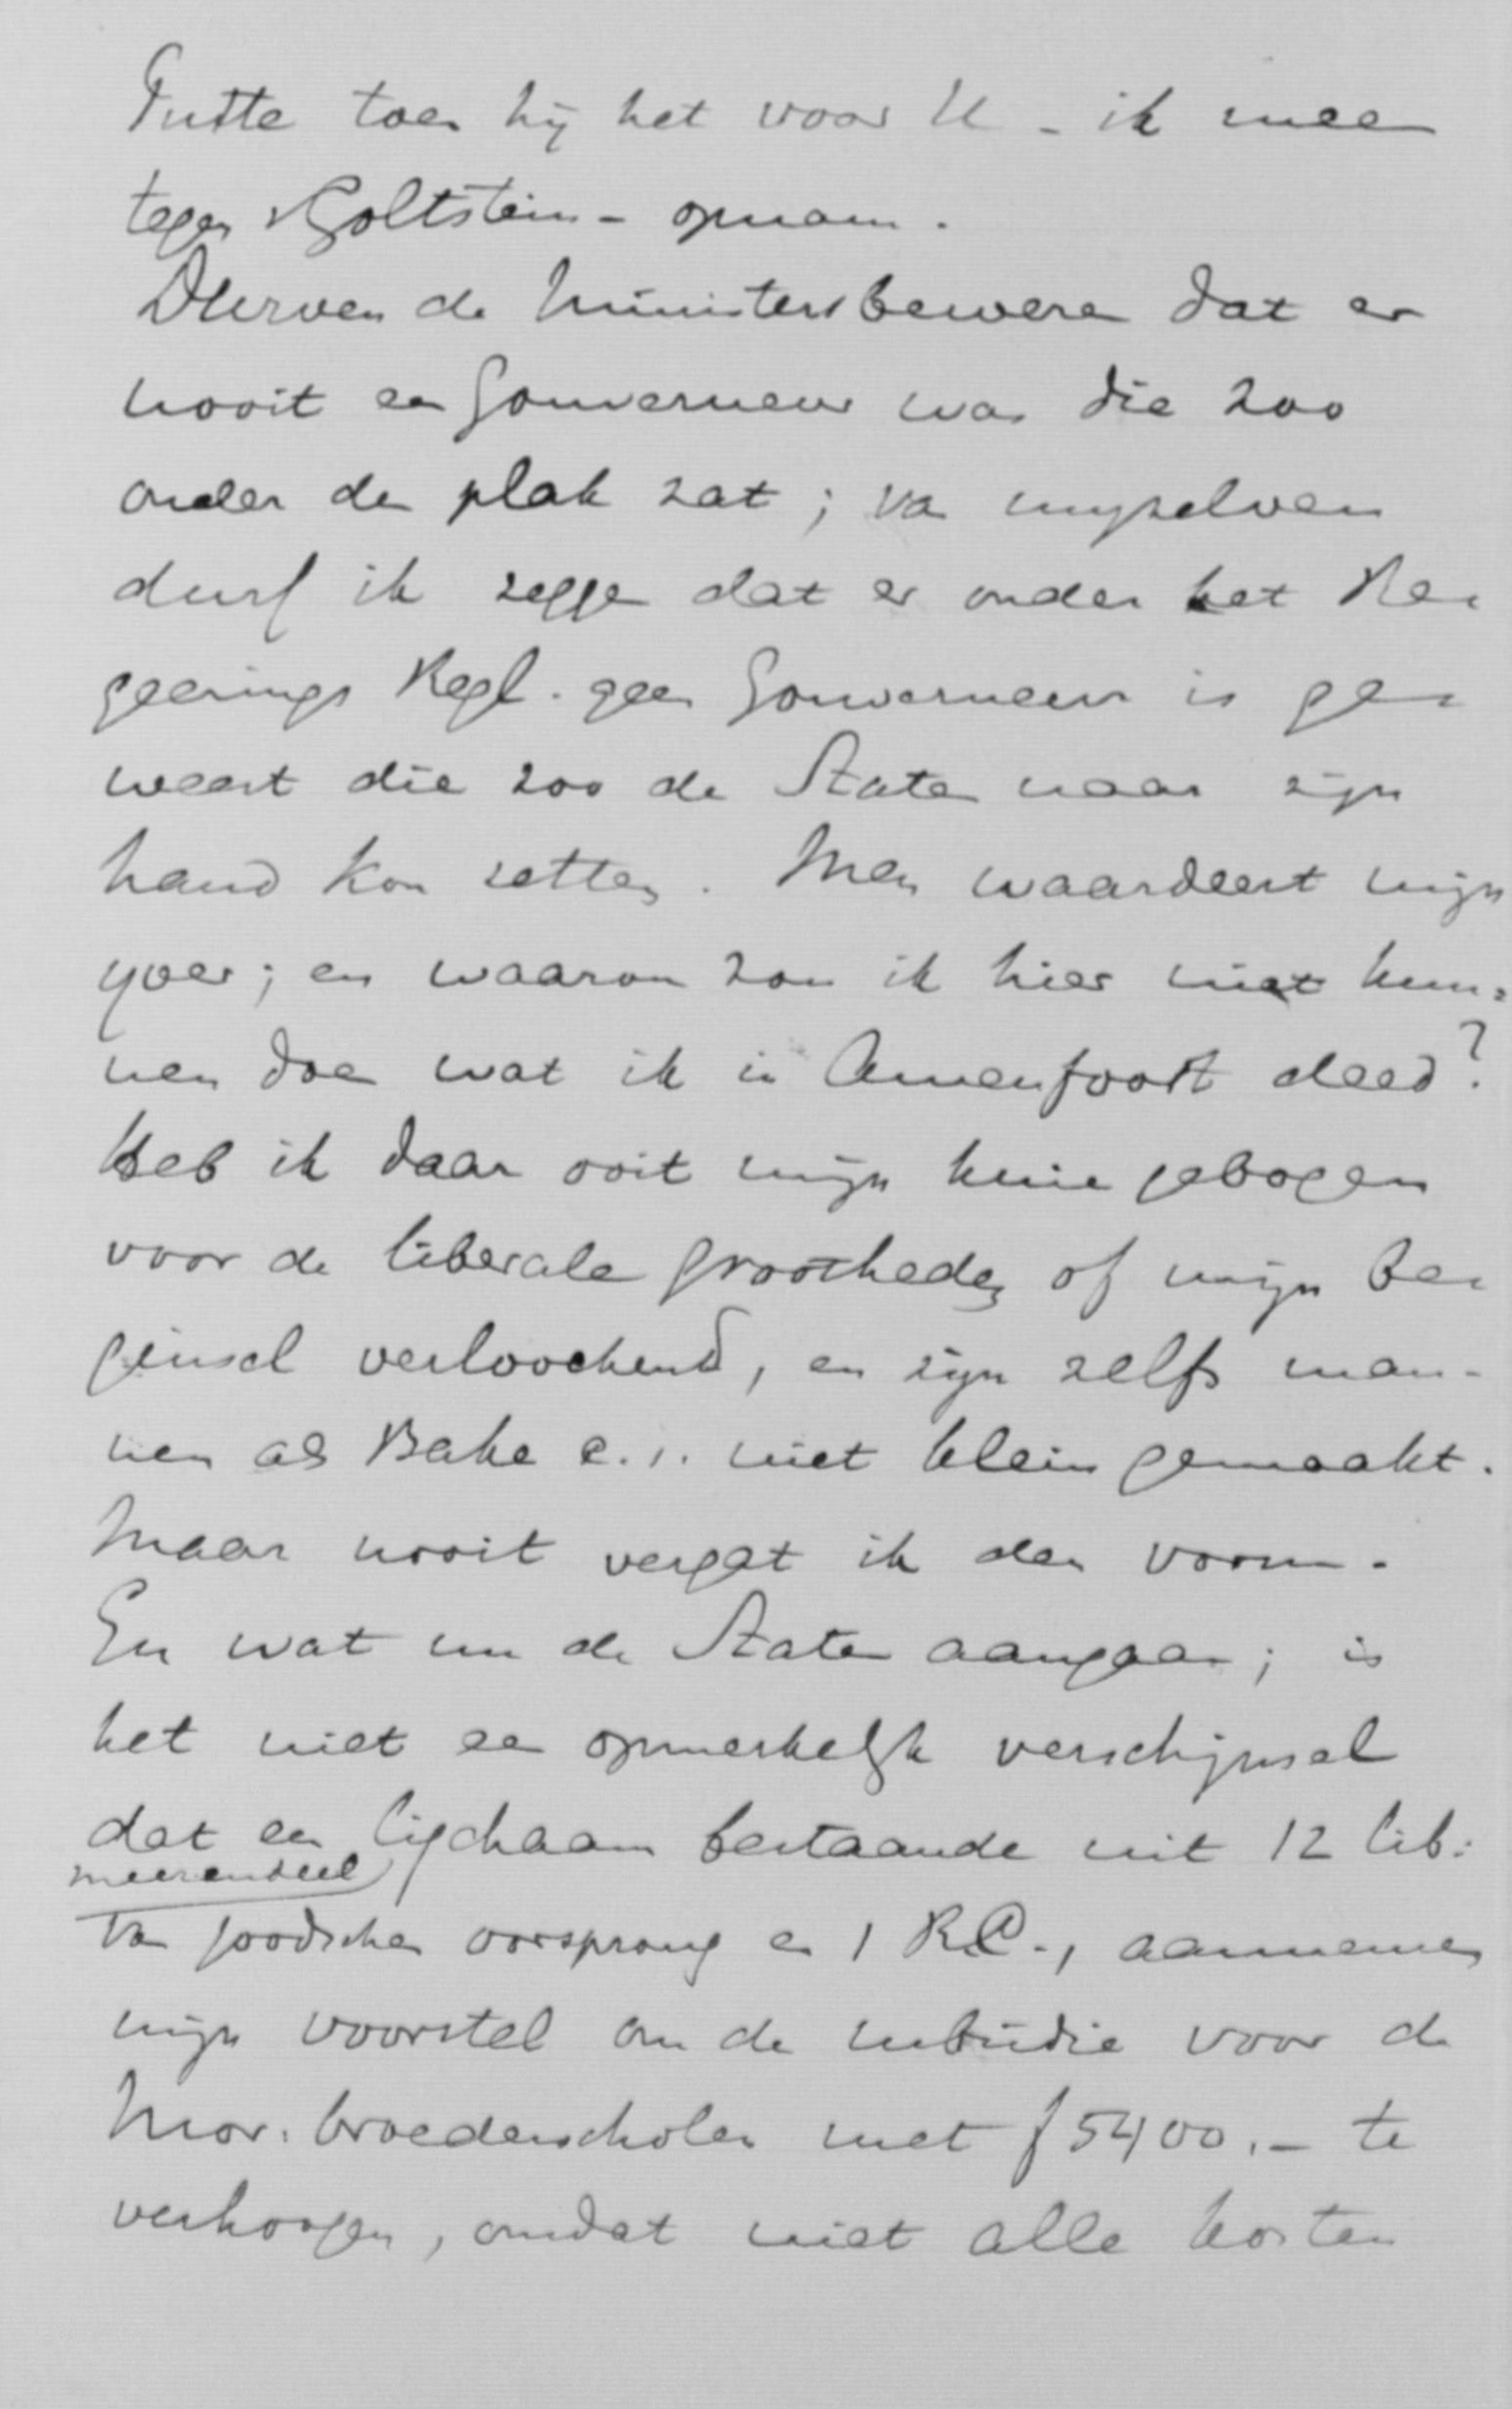 Putte toen hij het voor U - ik meen
tegen v Goltstein - opnam.
Durven de Ministers beweren dat er
nooit een Gouverneur was die zoo
onder de plak zat; van mijzelven
durf ik zeggen dat er onder het Re=
geerings Regl. geen Gouverneur is ge=
weest die zoo de Staten naar zijn
hand kon zetten. Men waardeert mijn
ijver; en waarom zou ik hier niet kun=
nen doen wat ik in Amersfoort deed?
Heb ik daar ooit mijn knie gebogen
voor de liberale grootheden of mijn be=
ginsel verloochend, en zijn zelfs man-
nen als Bake e.a. niet klein gemaakt.
Maar nooit vergat ik den vorm.
En wat nu de Staten aangaan; is
het niet een opmerkelijk verschijnsel
dat een lichaam bestaande uit 12 lib:
meerendeel
van joodschen oorsprong en 1 R.C., aannemen
mijn voorstel om de subsidie voor de
Mor. broederscholen met f 5400.- te
verhoogen, omdat niet alle kosten